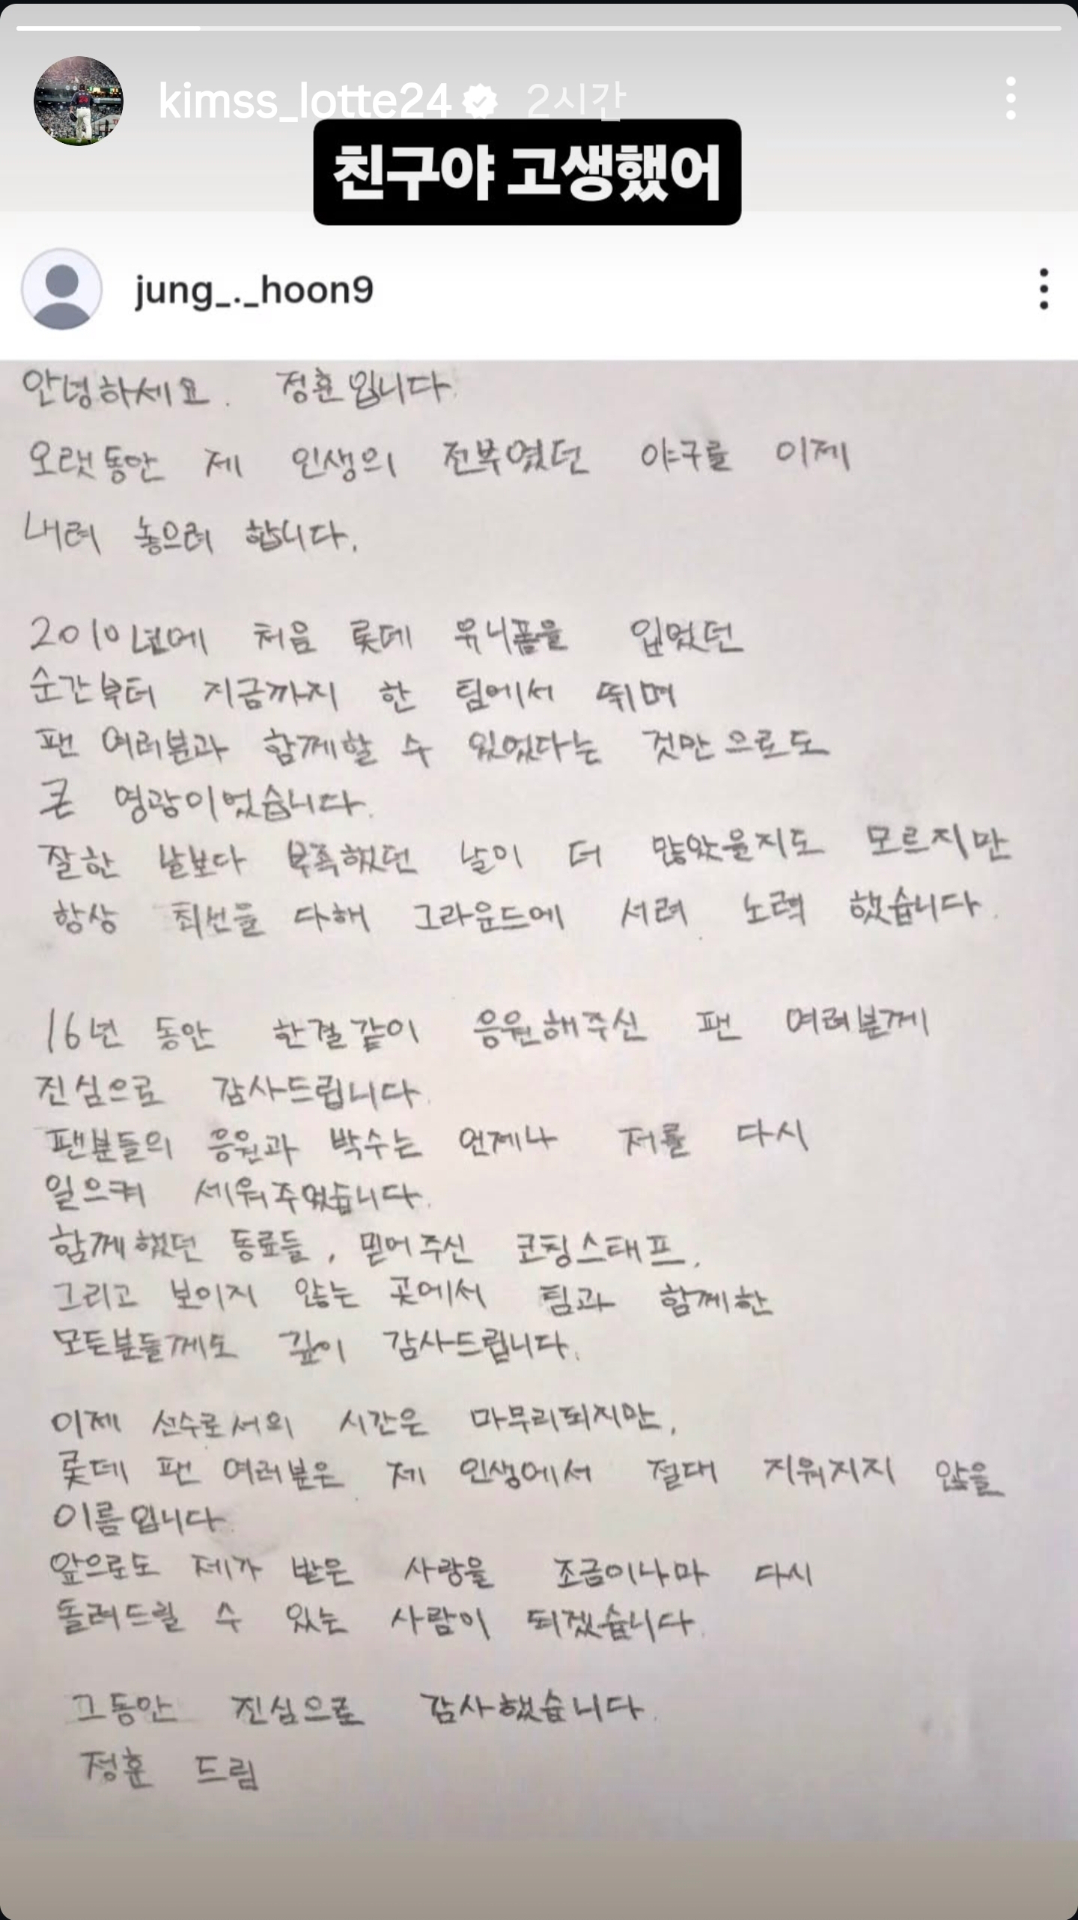 kimss_lotte24 2시간
친구야 고생했어
jung_._hoon9
안녕하세요. 정훈입니다.
오랫동안 제 인생의 전부였던 야구를 이제
내려 놓으려 합니다.
2010년에 처음 롯데 유니폼을 입었던
순간부터 지금까지 한 팀에서 뛰며
팬 여러분과 함께할 수 있었다는 것만으로도
큰 영광이었습니다.
잘한 날보다 부족했던 날이 더 많았을지도 모르지만
항상 최선을 다해 그라운드에 서려 노력 했습니다.
16년 동안 한결같이 응원해주신 팬 여러분께
진심으로 감사드립니다.
팬분들의 응원과 박수는 언제나 저를 다시
일으켜 세워주었습니다.
함께했던 동료들, 믿어주신 코칭스태프,
그리고 보이지 않는 곳에서 팀과 함께한
모든분들께도 깊이 감사드립니다.
이제 선수로서의 시간은 마무리되지만,
롯데 팬 여러분은 제 인생에서 절대 지워지지 않을
이름입니다.
앞으로도 제가 받은 사랑을 조금이나마 다시
돌려드릴 수 있는 사람이 되겠습니다.
그동안 진심으로 감사했습니다.
정훈 드림